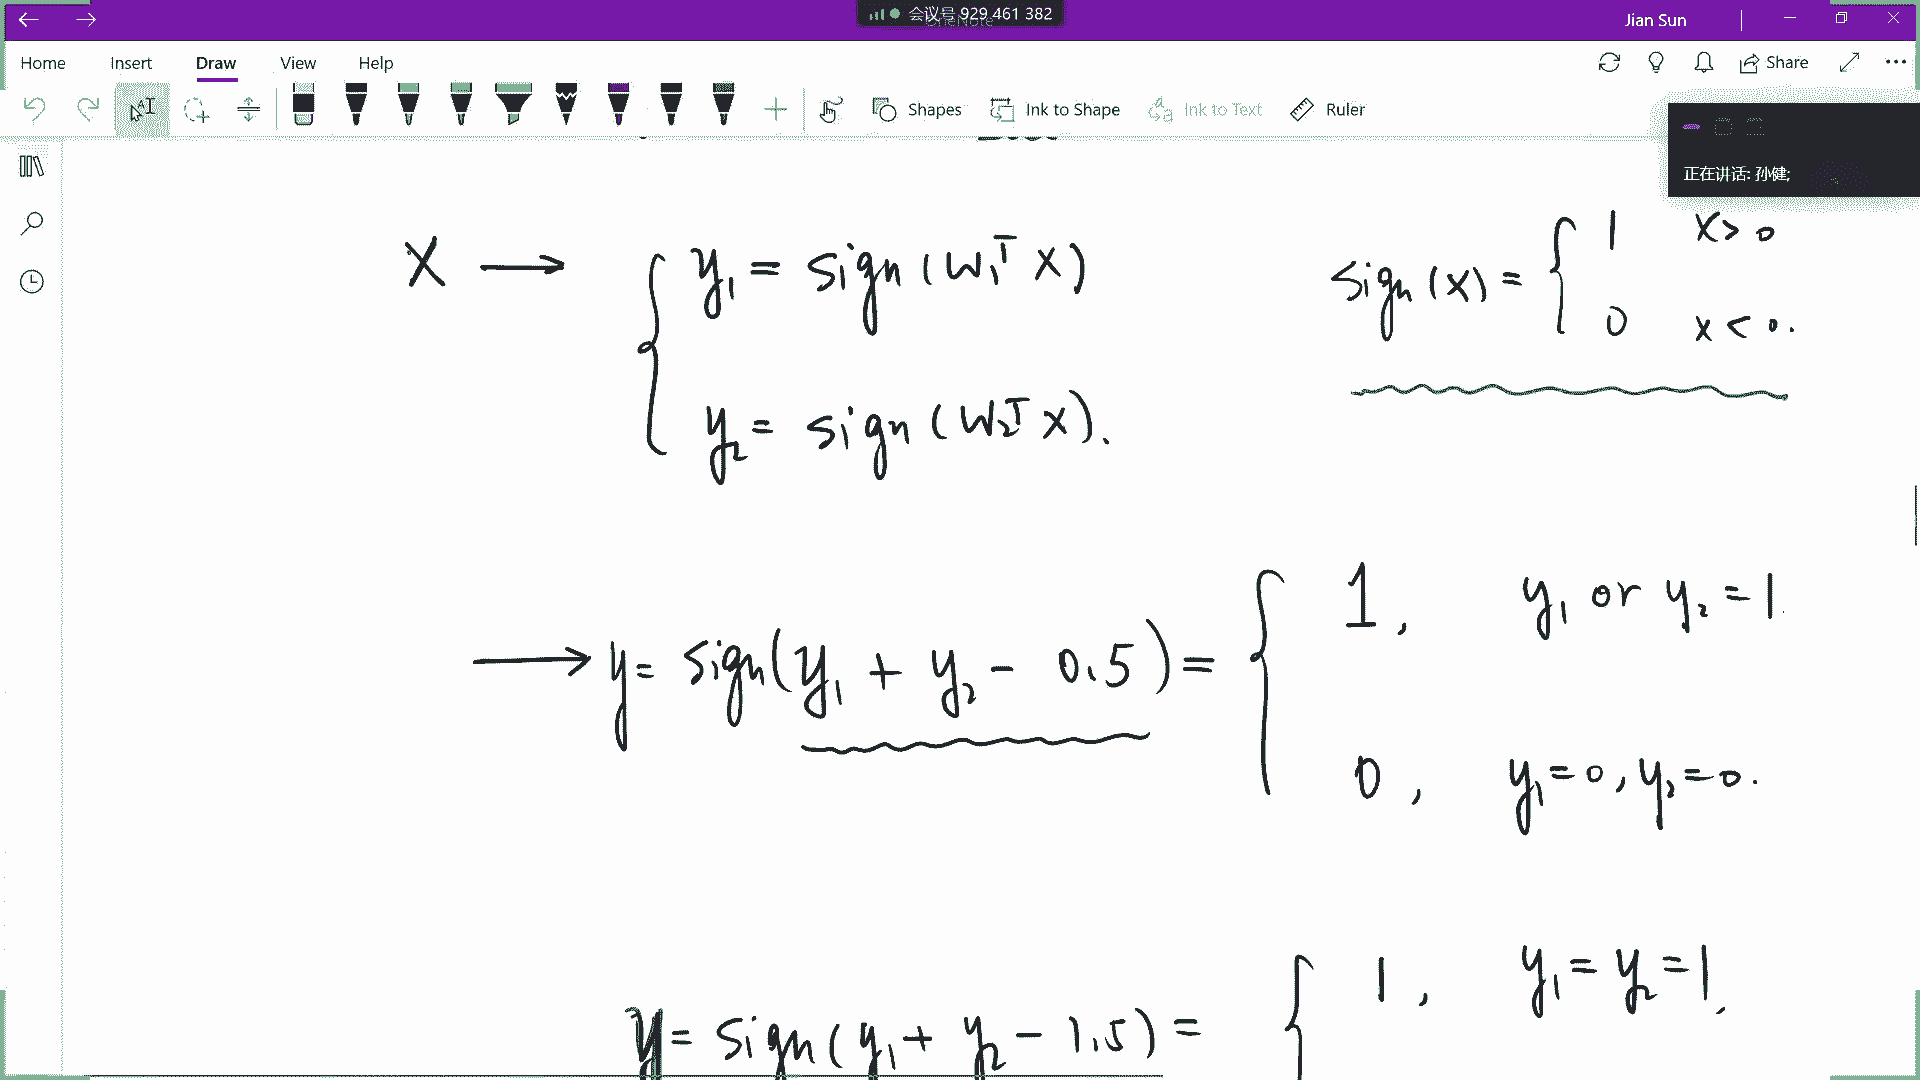 会议号 929 461 382
Jian Sun
Home Insert Draw View Help
Share
Shapes Ink to Shape Ink to Text Ruler
正在讲话: 孙健;
X → { y₁ = sign (W₁ᵀ X)
y₂ = sign (W₂ᵀ X).
sign (x) = { 1 x > 0
0 x < 0.
→ y = sign(y₁ + y₂ - 0.5) = { 1, y₁ or y₂ = 1.
0, y₁ = 0, y₂ = 0.
y = sign (y₁ + y₂ - 1.5) = { 1, y₁ = y₂ = 1.